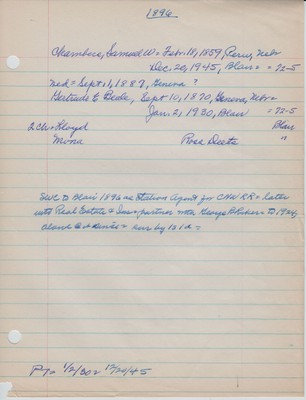 1896
Chambers, Samuel W = Feb. 18, 1859, Peru, Nebr
Dec. 20, 1945, Blair = 72-5
md = Sept 1, 1887, Geneva ?
Gertrude E Bede, Sept 10, 1870, Geneva, Nebr =
Jan. 2, 1930, Blair = 72-5
2 Ch = Lloyd Blair
Mona Rosa Deeta "
SWC to Blair 1896 as Station Agent for CNWRR = Later
with Real Estate = Ins = partner with George = to 1924,
alone = run by 1st =
1/2/30 = 12/20/45